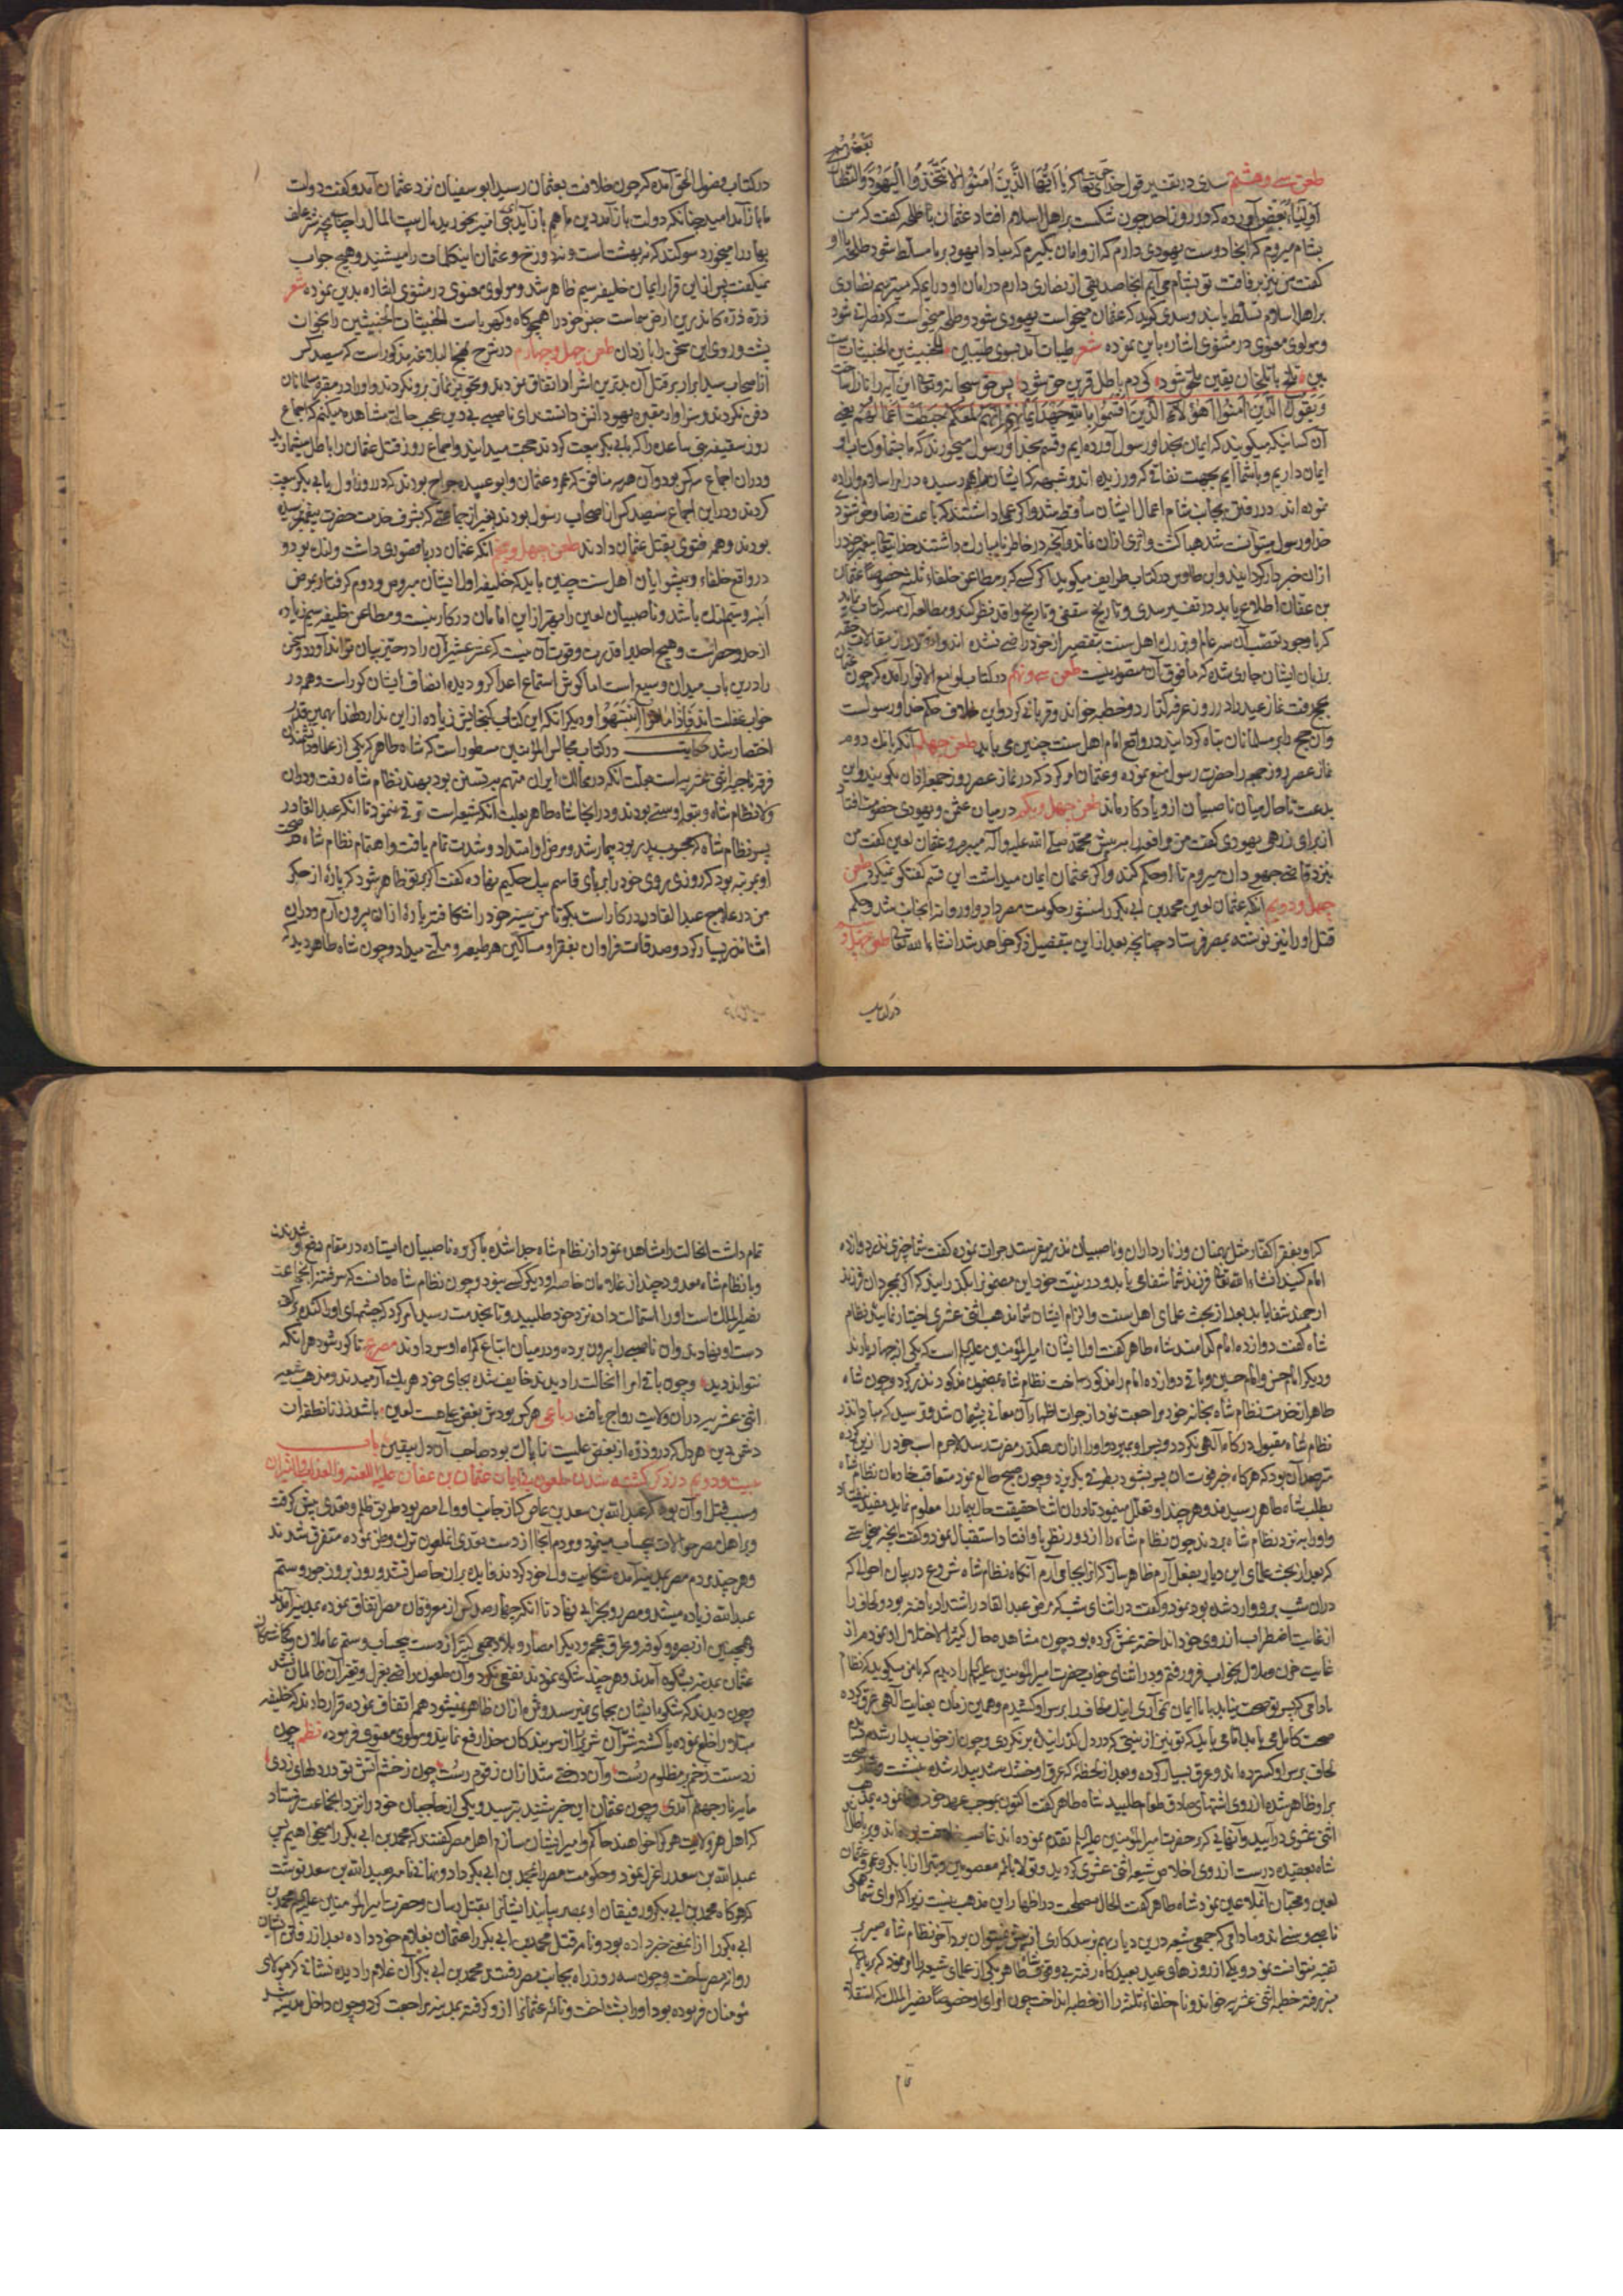 طعن سی و هشتم سدی در تفسیر قول خدای تعالی که یا ایها الذین امنوا لا تتخذوا الیهود والنصاری
اولیاء بعضهم آورده که در روز احد چون شکست بر اهل اسلام افتاد عثمان با طلحه گفت که من
بشام میروم که انجا دوست یهودی دارم که از وامان بگیرم که مبادا یهود بر ما مسلط شود طلحه با او
گفت من نیز برفاقت تو بشام می آیم انجا صدیقی از نصاری دارم در امان او درایم که میترسم نصاری
بر اهل اسلام تسلط یابند و سدی گوید که عثمان میخواست یهودی شود و طلحه میخواست که نصرانی شود
و مولوی معنوی در مثنوی اشاره باین نموده شعر طیبات آمد بسوی طیبین للخبیثین الخبیثات
بین تلخ با تلخان یقین ملحق شود کی دم باطل قرین حق شود پس حق سبحانه و تعالی این آیه را نازل ساخت
ویقول الذین امنوا اهؤلاء الذین اقسموا بالله جهد ایمانهم انهم لمعکم حبطت اعمالهم یعنی
آن کسانیکه میگویند که ایمان بخدا و رسول آورده ایم و قسم بخدا و رسول میخورند که ما بخدا و کتاب او
ایمان داریم و با شما ایم بجهت نفاقی که ورزیده اند و شبهه که ایشان را بهم رسیده در امر اسلام و اراده
نموده اند در رفتن بجانب شام اعمال ایشان ساقط شد و اگر عملی داشتند که باعث رضا و خوشنودی
خدا و رسول میتوانست شد هبا گشت و اثری از ان نماند و آنچه در خاطر نامبارک داشتند خدایتعالی پیغمبر خود را
از ان خبردار گردانید و ابن طاوس در کتاب طرایف میگوید اگر کسی که بر مطاعن خلفاء ثلثه خصوصا عثمان
بن عفان اطلاع یابد در تفسیر سدی و تاریخ سقفی و تاریخ واقد نظر کند و مطالعه آن سه کتاب نماید
که با وجود تعصب آن سه عالم و بزرک اهل سنت بتقصیر از خود راضی نشده اند و انقدر از مقالات حقه
بر زبان ایشان جاری شده که مافوق آن متصور نیست طعن سی و نهم در کتاب لوامع الانوار آمده که چون عثمان
بحج رفت نماز عید را در روز عرفه گذارد و خطبه خواند و قربانی کرد و این خلاف حکم خدا و رسولست
و آن حج را بر مسلمانان تباه گردانید در واقع امام اهل سنت چنین می باید طعن چهلم آنکه بانک دوم
نماز عصر روز جمعه را حضرت رسول منع نموده و عثمان امر کرد که در نماز عصر روز جمعه اذان بگویند و این
بدعت تا حال میان ناصبیان از و یادگار ماند طعن چهل و یکم در میان عثمن و یهودی خصومت افتاد
از برای زرهی یهودی گفت من مرافعه را به پیش محمد صلی الله علیه و آله میبرم و عفان لعین گفت من
نیزد قاضی جهودان میروم تا او حکم کند و اگر عثمان ایمان میداشت این قسم گفتگو نمیکرد طعن
چهل و دویم آنکه عثمان لعین محمد بن ابی بکر را منشور حکومت مصر داد و او روانه انجانب شد و حکم
قتل او را نیز نوشته بمصر فرستاد چنانچه بعد از این بتفصیل ذکر خواهد شد انشاء الله تعالی طعن چهل و سیم
در کتاب
در کتاب فصول الحق آمده که چون خلافت بعثمان رسید ابو سفیان نزد عثمان آمد و گفت دولت
ما باز آمد امید چنانکه دولت باز آمد دین ما هم باز آید
بهار را میخورد سوگند که نه بهشت است و نه دوزخ و عثمان اینکلمات را میشنید و هیچ جواب
نمیگفت پس از این قرار ایمان خلیفه سیم ظاهر شد و مولوی معنوی در مثنوی اشاره بدین نموده شعر
ذره ذره کاندرین ارض و سماست جنس خود را همچو کاه و کهرباست الخبیثات للخبیثین را بخوان
پشت و روی این سخن را باز دان طعن چهل و چهارم در شرح نهج البلاغه مذکور است که سیصد کس
از اصحاب سید ابرار بر قتل آن بدترین اشرار اتفاق نمودند و تجویز نماز برو نکردند و او را در مقبره مسلمانان
دفن نکردند و سزاوار مقبره یهود انش دانستند ای ناصبی بی دین عجب حالتی مشاهده میکنم که اجماع
روز سقیفه بنی ساعده را که بابی بکر بیعت کردند حجت میدانید و اجماع روز قتل عثمان را باطل میشمارید
و در ان اجماع سه کس بود و آن هر سه منافق که عمر و عثمان و ابو عبیده جراح بودند که در روز اول بابی بکر بیعت
کردند و در این اجماع سیصد کس از اصحاب رسول بودند بغیر از جماعتی که بشرف خدمت حضرت پیغمبر رسیده
بودند و همه فتوی بقتل عثمان دادند طعن چهل و پنجم آنکه عثمان دریا قصوری داشت و لنک بود و
در واقع خلفاء و پیشوایان اهل سنت چنین باید که خلیفه اول ایشان مبروص و دوم گرفتار بمرض
ابنه و سیم لنک باشد و ناصبیان لعین را بهتر از این امامان در کار نیست و مطاعن خلیفه سیم زیاده
از حد و حصر است و هیچ احدیرا قدرت و قوت آن نیست که عشر عشیر آن را در حیز بیان تواند آورد و سخن
را درین باب میدان وسیع است اما گوش استماع اعدا کر و دیده انصاف ایشان کور است و همه در
خواب غفلت اند فاذا ماتوا انتبهوا و دیگر آنکه این کتاب گنجایش زیاده از این ندارد لهذا بهمین قدر
اختصار شد حکایت در کتاب مجالس المؤمنین مسطور است که شاه طاهر که یکی از علما و دانشمندان
فرقه ناجیه اثنی عشریه است بعلت آنکه در ممالک ایران متهم به تسنن بود بهند نظام شاه رفت و در ان
ولا نظام شاه و توابع او سنی بودند و در انجا شاه طاهر بعلت آنکه شیعه است ترقی ننمود تا آنکه عبدالقادر
پسر نظام شاه که محبوب پدر بود بیمار شد و مرض او امتداد و شدت تمام یافت و اهتمام نظام شاه صحت
او بمرتبه بود که روزی روی خود را بر پای قاسم بیک حکیم نهاده گفت اگر بر تو ظاهر شود که پاره از جگر
من در علاج عبدالقادر در کار است بگو تا من سینه خود را شکافته پاره از ان بیرون آرم و در ان
اثنا نذر بسیار کرد و صدقات فراوان بفقرا و مساکین هر طبقه و ملتی میداد و چون شاه طاهر دید که
که او بفقراء کفار مثل برهمنان و زنارداران و ناصبیان نذر میفرستد جرات نموده گفت شما چیزی نذر دوازده
امام کنید انشاء الله تعالی فرزند شما شفا می یابد و در نیت خود این مضمون را بگذرانید که اگر بمجرد ان فرزند
ارجمند شفا یابد بعد از بحث علمای اهل سنت و الزام ایشان شما مذهب اثنی عشری اختیار نمایید نظام
شاه گفت دوازده امام کدامند شاه طاهر گفت اول ایشان امیر المؤمنین علیه السلام است که یکی از چهار یارند
و دیگر امام حسن و امام حسین و باقی دوازده امام را مذکور ساخت نظام شاه بمضمون مذکور نذر کرد و چون شاه
طاهر از خدمت نظام شاه بخانه خود مراجعت نمود از جرات اظهار آن معانی پشیمان شد و ترسید که مبادا نذر
نظام شاه مقبول درگاه آلهی نگردد و پسر او بمیرد و او را از ان رهگذر مضرت رسد لاجرم اسب خود را زین کرده
مترصد آن بود که هرگاه خبر فوت آن پسر بشنود بطرفی بگریزد و چون صبح طالع نمود متعاقب خادمان نظام شاه
بطلب شاه طاهر رسیدند و هر چند او تعلل مینمود تا در ان اثنا حقیقت حال بیمار را معلوم نماید مفید نیفتاد
و او را به نزد نظام شاه بردند چون نظام شاه را از دور نظر باو افتاد استقبال نمود و گفت آنچه میخواستی
که بعد از بحث علمای این دیار بفعل آرم ظاهر ساز که از انجا می آرم آنگاه نظام شاه شروع در بیان احوالی که
در ان شب برو وارد شده بود نمود و گفت در اثنای شب که مرض عبدالقادر اشتداد یافته بود و لحاف را
از غایت اضطراب از روی خود انداخته غش کرده بود چون مشاهده حال کثیر الاختلال او نمودم از
غایت حزن و ملال بخواب فرو رفتم و در اثنای خواب حضرت امیر المؤمنین علیه السلام را دیدم که بامن میگوید که نظام
مادامی که پسر تو صحت نیابد باما ایمان نمی آری اینک لحاف را بر سر او کشیدم و همین زمان بعنایت آلهی عرق کرده
صحت کامل می یابد اما می باید که تو نیز از نیتی که در دل گذرانیده برنگردی و چون از خواب بیدار شدم دیدم
لحاف بر سر او گسترده اند و عرق بسیار کرده و بعد از لحظه که عرق او خشک شد بیدار شده بنشست و اثر صحت
برو ظاهر شده از روی اشتهای صادق طعام طلبید شاه طاهر گفت اکنون بموجب عهد خود وفا نموده بمذهب
اثنی عشری درآیید و آنهائی که بر حضرت امیر المؤمنین علیه السلام تقدم نموده اند غاصب خلافت بوده اند و بر باطل
شاه بعقیده درست از روی اخلاص شیعه اثنی عشری گردید و تولا بائمه معصومین و تبرا از ابابکر و عمر و عثمان
لعین و محبان آن ملاعین نمود شاه طاهر گفت الحال مصلحت در اظهار این مذهب نیست زیرا که امرای شما همگی
ناصبی و سنی اند و مادامی که جمعی شیعه درین دیار بهم نرسد کاری از پیش نمیتوان برد آخر نظام شاه صبر بر
تقیه نتوانست نمود و یکی از روزهای عید بعیدگاه رفته بی وقوف شاه طاهر یکی از علمای شیعه را امر نمود که بر بالای
منبر رفته خطبه اثنی عشریه خواند و نام خلفاء ثلثه را از خطبه انداخت چون امرای او خصوصا نصیر الملک که استقلال
تمام
تمام داشت انحالت را مشاهده نمود از نظام شاه جدا شده با گروه ناصبیان ایستاده در مقام دفع او شدند
و با نظام شاه معدودی چند از غلامان خاصه او دیگر کسی نبود و چون نظام شاه دانست که سرفتنه انجماعت
نصیر الملک است او را استمالت داده نزد خود طلبید و تا بخدمت رسید امر کرد که چشمهای او را کنده بر کف
دست او نهادند و آن ناصبی را بیرون برده و در میان اتباع گمراه او سر دادند مصرع تا کور شود هر آنکه
نتواند دید و چون باقی امرا انحالت را دیدند خایف شده بجای خود هر یک آرمیدند و مذهب شیعه
اثنی عشریه در ان ولایت رواج یافت رباعی هر کس بودش بغض علی هست لعین باشد ز زنا نطفه ان
دشمن دین هر دل که درو ذره از بغض علیست ناپاک بود صاحب آن دل بیقین باب
بیست و دویم در ذکر کشته شدن ملعون بی پایان عثمان بن عفان علیه اللعنه والعذاب والنیران
و سبب قتل او آن بود که عبدالله بن سعد بن عاص که از جانب او والی مصر بود طریق ظلم و تعدی پیش گرفت
و بر اهل مصر حوالات بیحساب مینمود و مردم آنجا از دست تعدی انملعون ترک وطن نموده متفرق شدند
و هر چند مردم مصر بمدینه آمده شکایت والی خود کردند فایده بران حاصل نشد و روز بروز جور و ستم
عبدالله زیاده میشد و مصر رو بخرابی نهاد تا آنکه چهارصد کس از معروفان مصر اتفاق نموده بمدینه آمدند
و همچنین از بصره و کوفه و عراق عجم و دیگر امصار و بلاد جمعی کثیر از دست بیحساب و ستم عاملان و گماشتگان
عثمان بمدینه بشکوه آمدند و هر چند شکوه نمودند نفعی نکرد و آن ملعون براضی بعزل و تغیر آن ظالمان نشد
چون دیدند که شکوه ایشان بجای نمیرسد و اثری ازان ظاهر نمیشود همه اتفاق نموده قرار دادند که خلیفه
را خلع نموده یا کشته شر آن شریر را از سر بندگان خدا رفع نمایند و مولوی معنوی فرموده نظم چون
ز دستت زخم بر مظلوم رست آن درختی شد ازان زقوم رست چون ز خشم آتش تو در دلهای زدی
مایه نار جهنم آمدی و چون عفان این خبر شنید بترسید و یکی از حاجبان خود را نزد انجماعت فرستاد
که اهل هر ولایت هر کرا خواهند حاکم و امیر ایشان سازم اهل مصر گفتند که محمد بن ابی بکر را میخواهیم پس
عبدالله بن سعد را عزل نمود و حکومت مصر را بمحمد بن ابی بکر داد و نهانی نامه بعبدالله بن سعد نوشت
که هرگاه محمد بن ابی بکر و رفیقان او بمصر بیایند ایشان را بقتل رسان و حضرت امیر المؤمنین علیه السلام محمد بن
ابی بکر را از انمعنی خبر داده بود و نامه قتل محمد بن ابی بکر را عثمان بغلام خود داده بعد از رفتن ایشان
روانه مصر ساخت و چون سه روز راه بجانب مصر رفتند محمد بن ابی بکر آن غلام را دیده نشانی که مولای
مؤمنان فرموده بود او را بشناخت و نامه عثمان را از و گرفته بمدینه مراجعت کرد و چون داخل مدینه شد